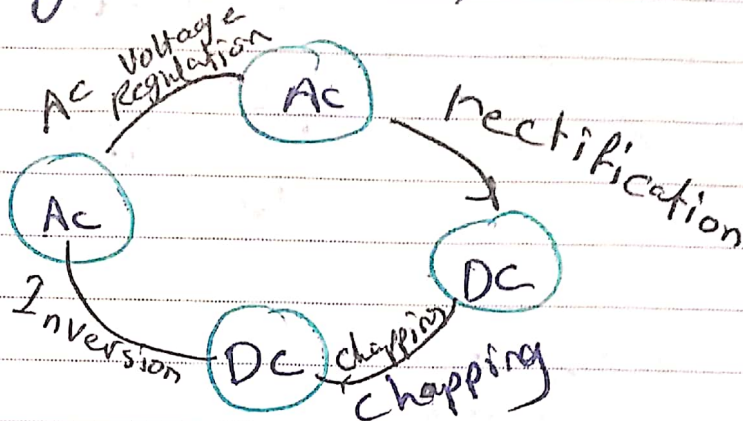 AC Voltage
Regulation
AC
rectification
AC
DC
Inversion
DC
chapping
Chapping